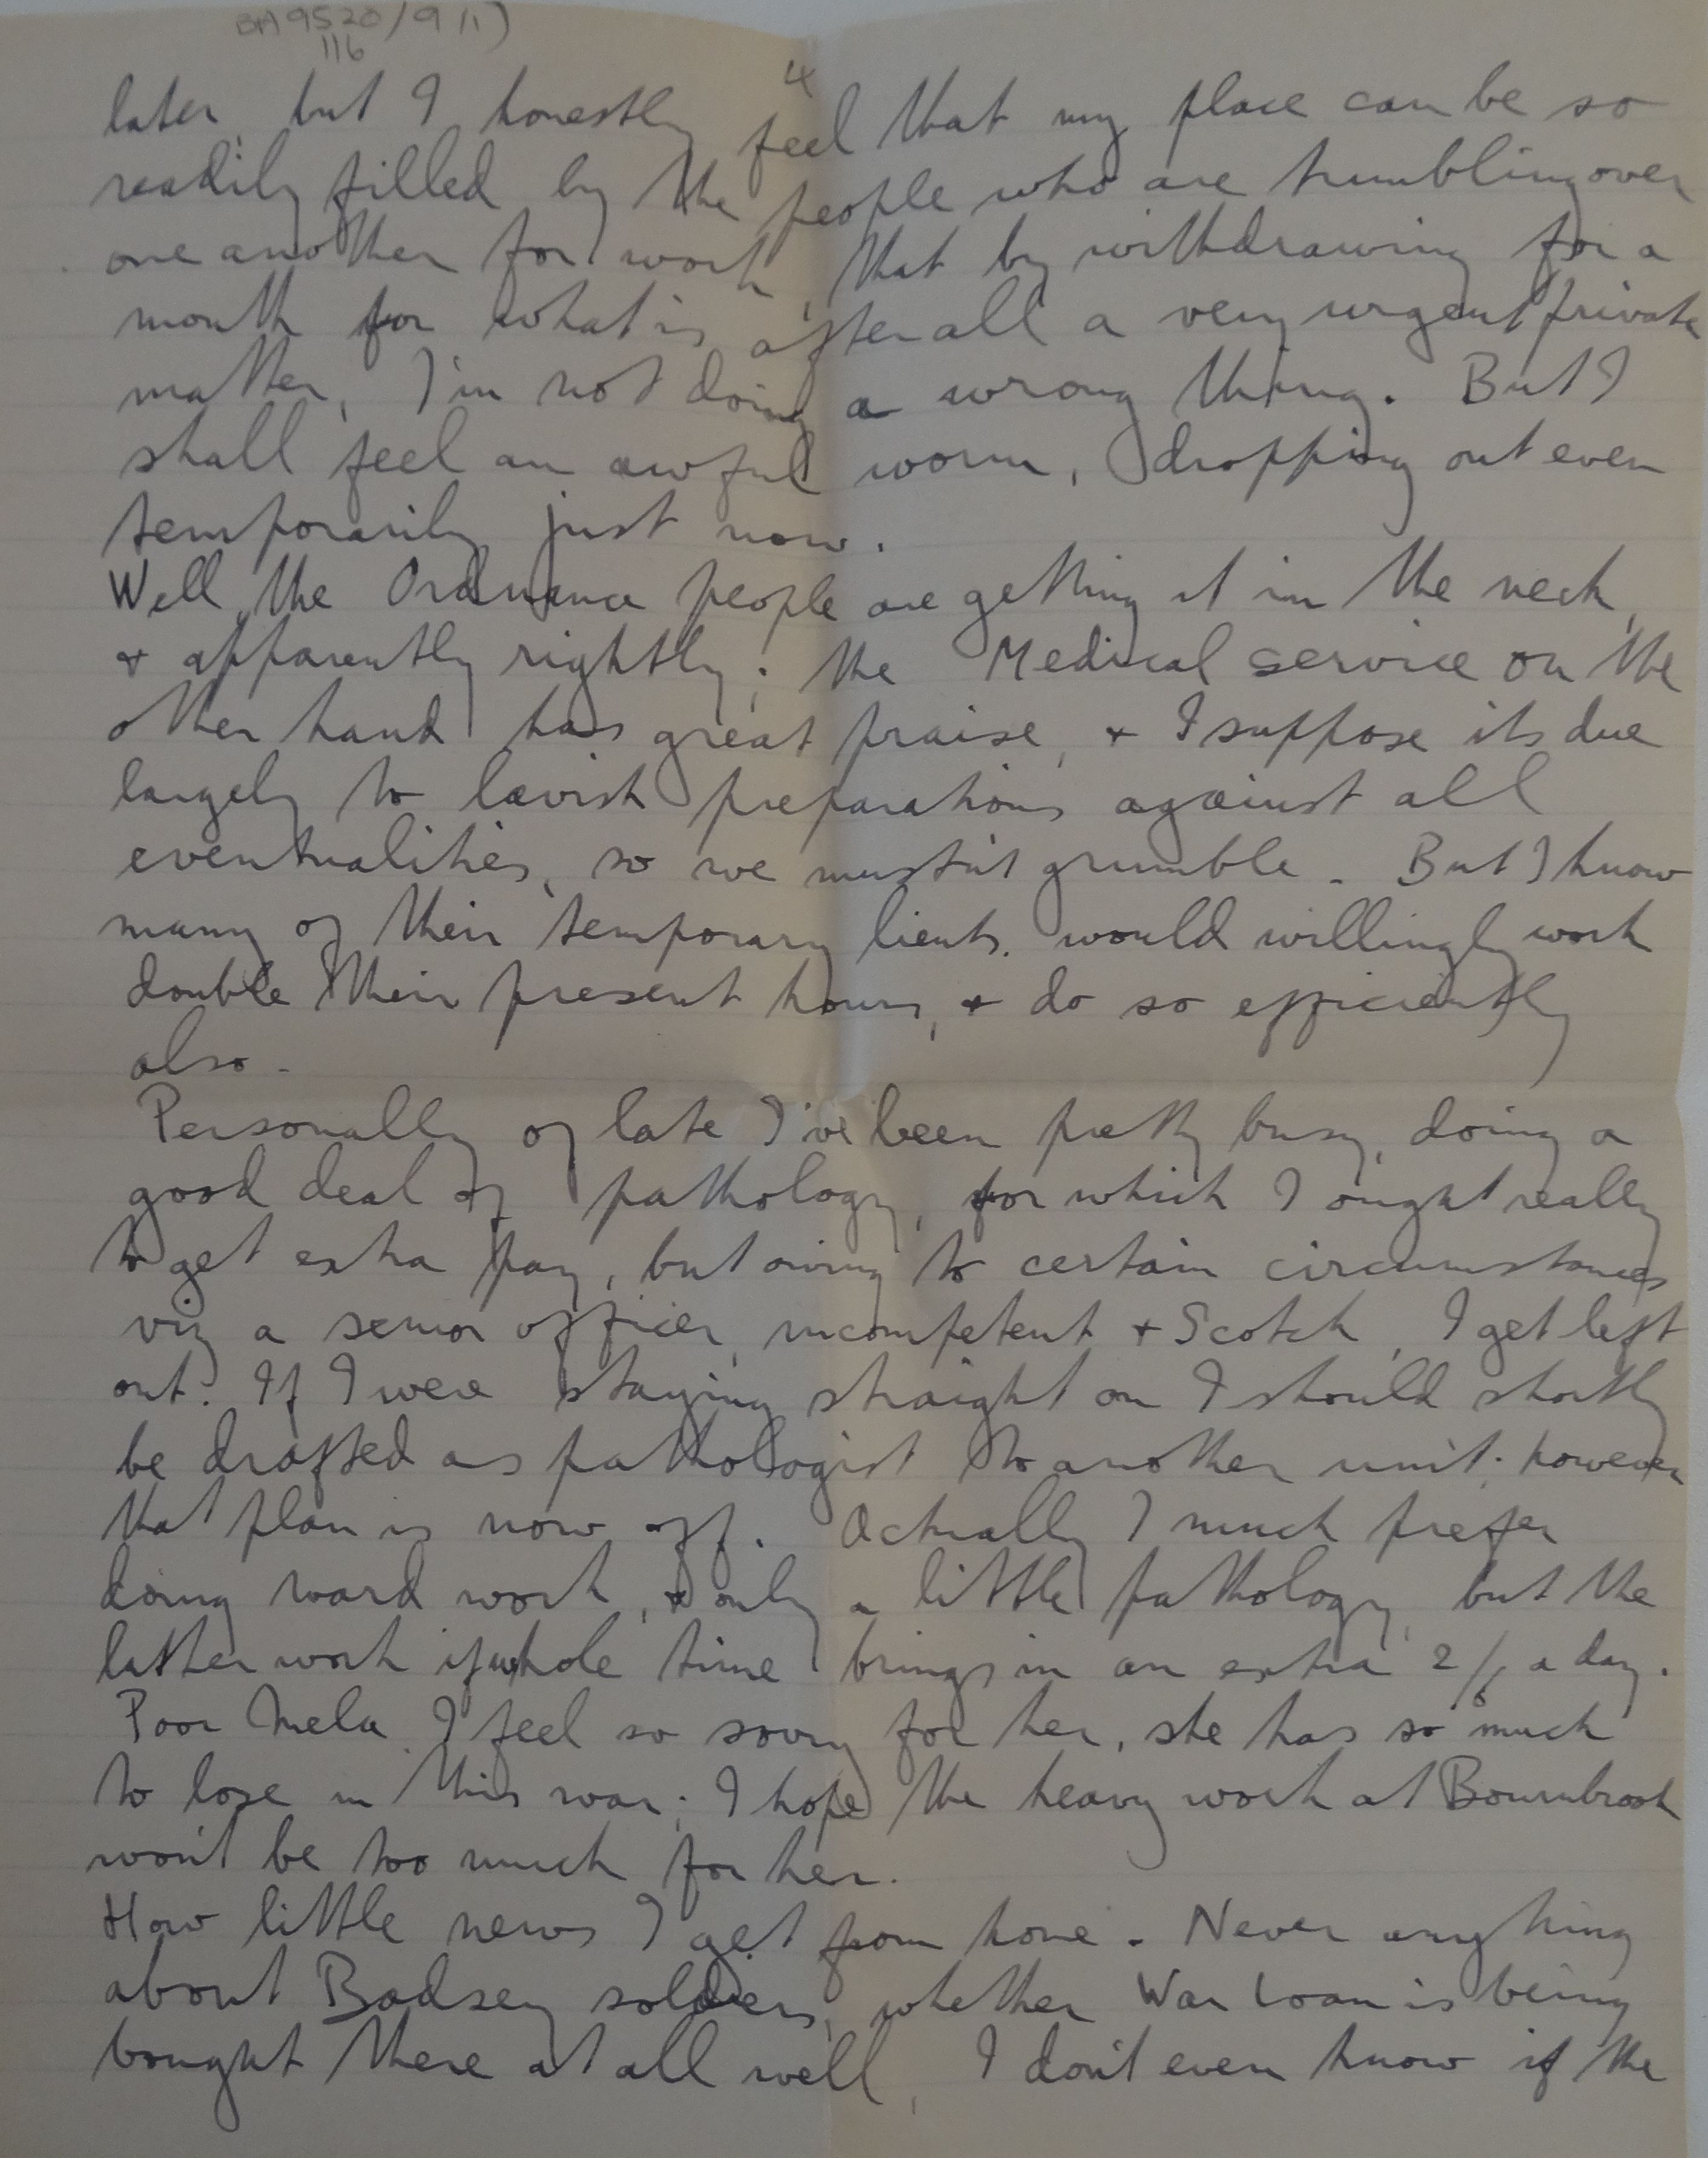 BA9520/9(1)
116
4
later, but I honestly feel that my place can be so
readily filled by the people who are tumbling over
one another for work, that by withdrawing for a
month for what is after all a very urgent private
matter, I'm not doing a wrong thing. But I
shall feel an awful worm, dropping out even
temporarily just now.
Well, the Ordnance people are getting it in the neck,
& apparently rightly; the Medical service on the
other hand has great praise, & I suppose its due
largely to lavish preparations against all
eventualities, so we mustn't grumble. But I know
many of their temporary lieuts. would willingly work
double their present hours, & do so efficiently
also.
Personally of late I've been pretty busy, doing a
good deal of pathology, for which I ought really
to get extra pay, but owing to certain circumstances
viz a senior officer, incompetent & Scotch, I get left
out. If I were staying straight on I should shortly
be drafted as pathologist to another unit; however
that plan is now off. Actually I much prefer
doing ward work, & only a little pathology, but the
latter work if whole time brings in an extra 2/6 a day.
Poor Mela. I feel so sorry for her, she has so much
to lose in this war; I hope the heavy work at Bournbrook
won't be too much for her.
How little news I get from home. Never anything
about Badsey soldiers, whether War Loan is being
bought there at all well, I don't even know if the